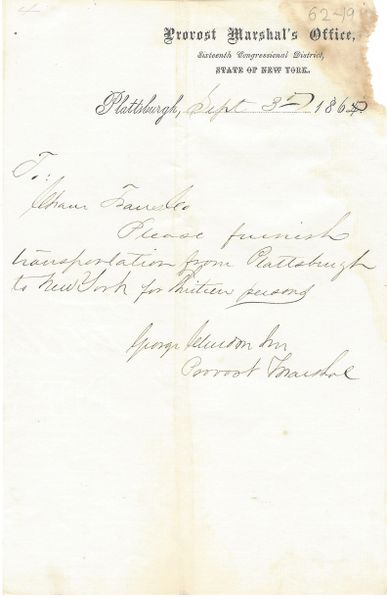 62-19
Provost Marshal's Office,
Sixteenth Congressional District,
STATE OF NEW YORK.
Plattsburgh, Sept 3rd 1864
To:
Cham Trans Co
Please furnish
transportation from Plattsburgh
to New York for thirteen persons
George Clendon Jnr
Provost Marshal